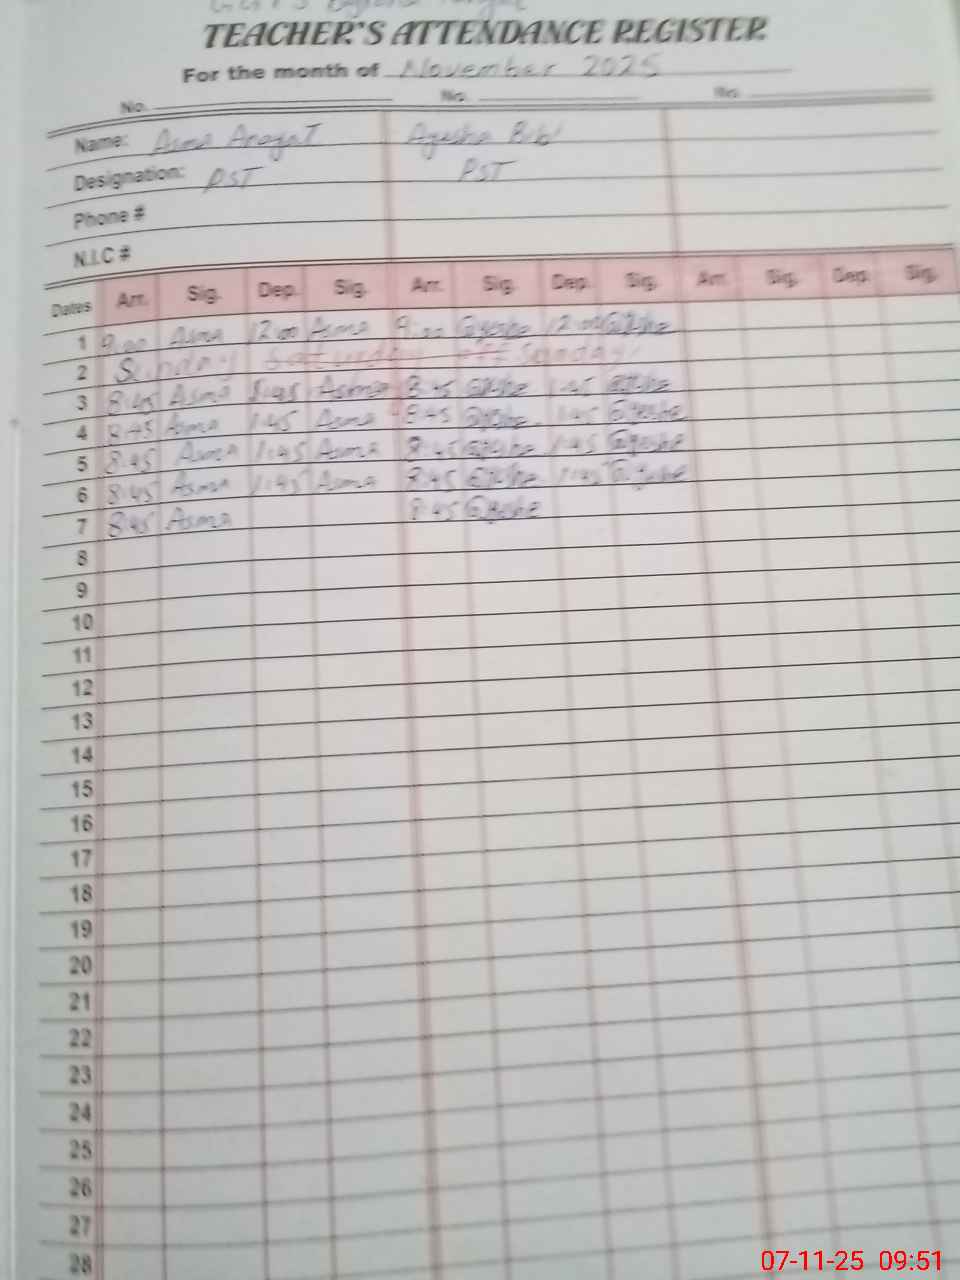 TEACHER'S ATTENDANCE REGISTER
For the month of November 2025
No. No. No.
Name: Asma Anayat Ayesha Bibi
Designation: PST PST
Phone #
N.I.C #
Dates Arr. Sig. Dep. Sig. Arr. Sig. Dep. Sig. Arr. Sig. Dep. Sig.
1 9:00 Asma 12:00 Asma 9:00 Ayesha 12:00 Ayesha
2 Sunday Sunday
3 8:45 Asma 1:45 Asma 8:45 Ayesha 1:45 Ayesha
4 8:45 Asma 1:45 Asma 8:45 Ayesha 1:45 Ayesha
5 8:45 Asma 1:45 Asma 8:45 Ayesha 1:45 Ayesha
6 8:45 Asma 1:45 Asma 8:45 Ayesha 1:45 Ayesha
7 8:45 Asma 8:45 Ayesha
8
9
10
11
12
13
14
15
16
17
18
19
20
21
22
23
24
25
26
27
28
07-11-25 09:51